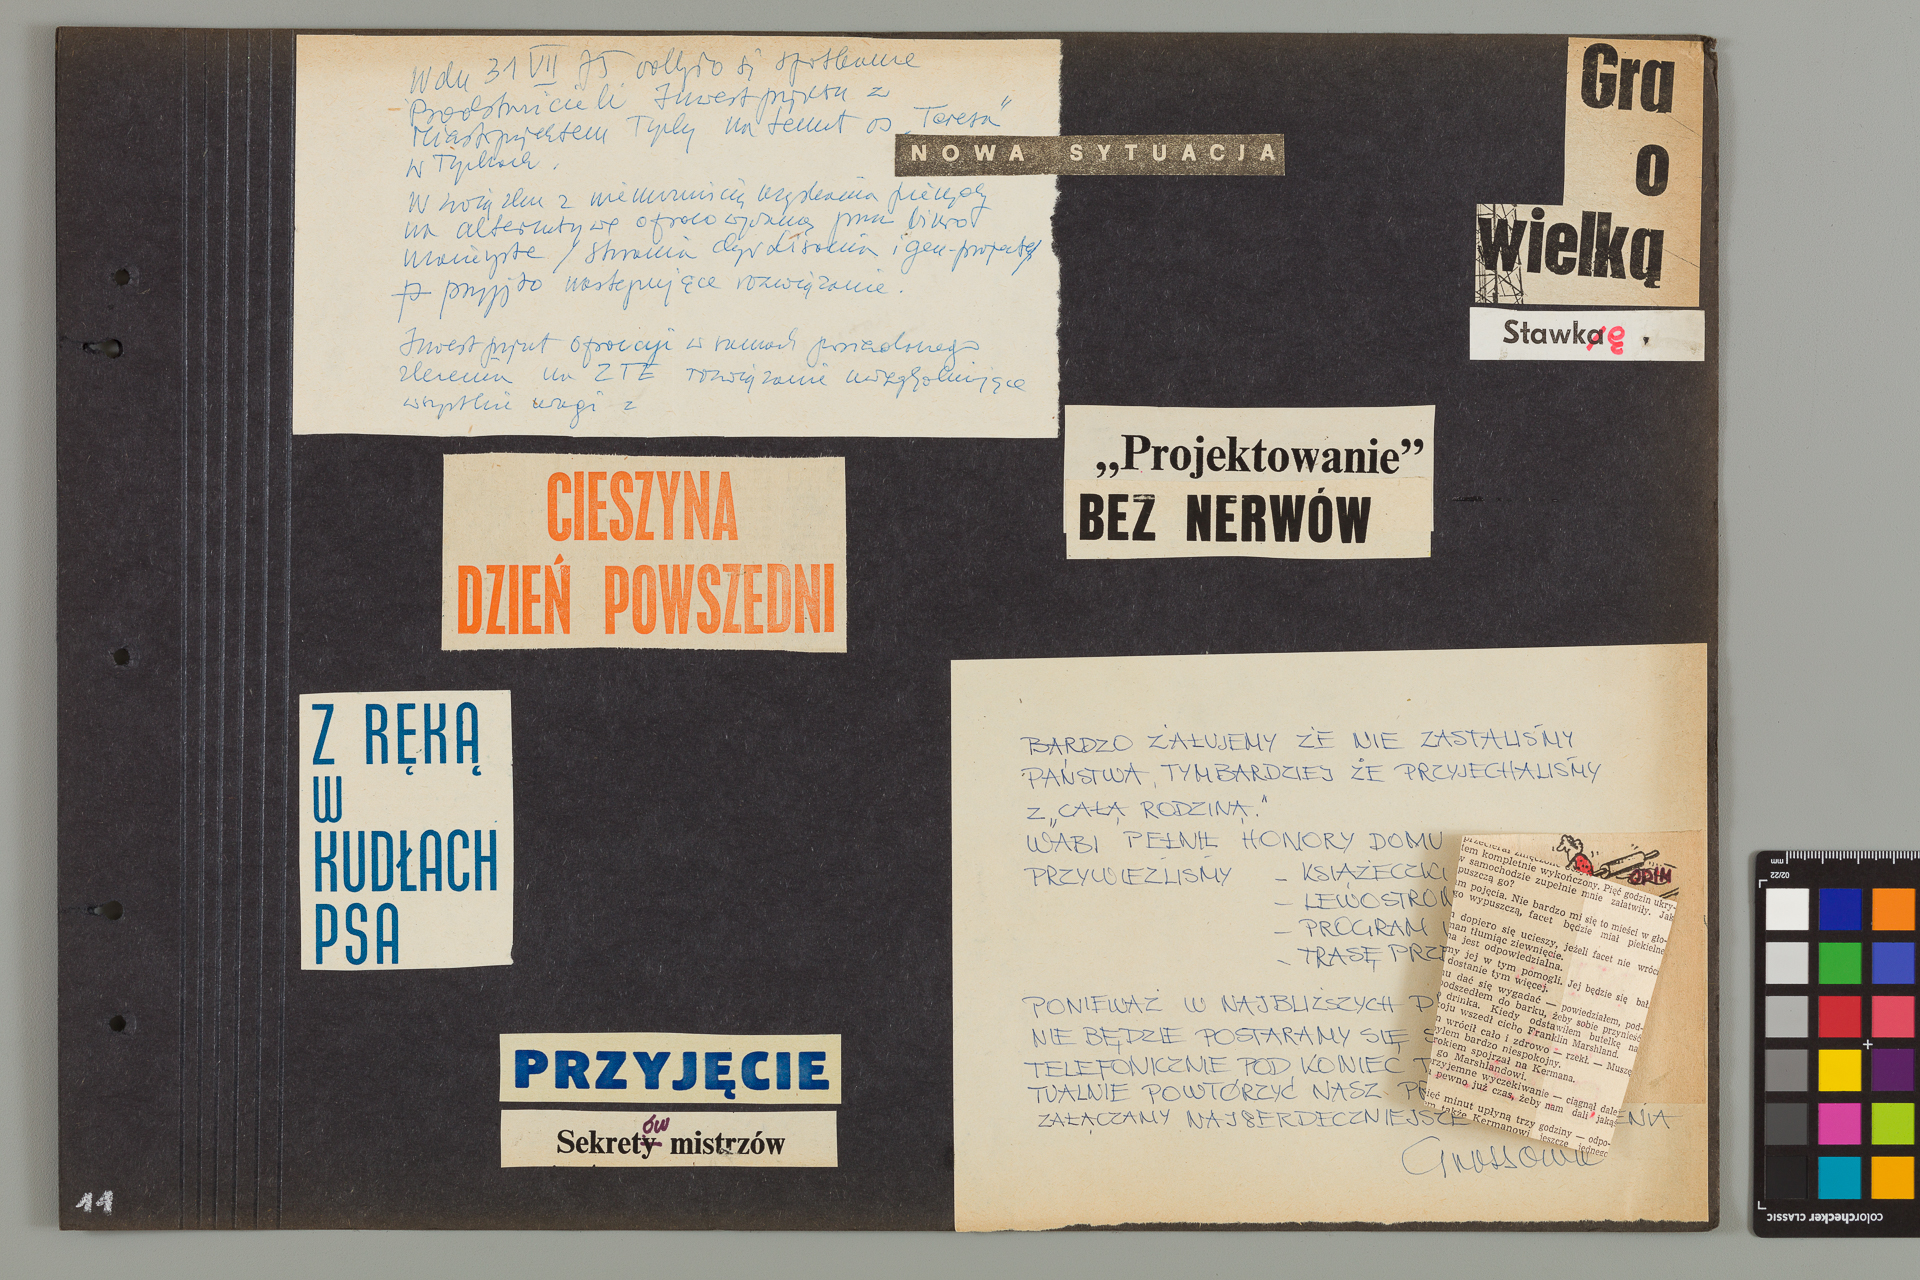 W dn 31 VII 75 odbyło się spotkanie
Przedstawicieli Inwestprojektu z
Miastprojektem Tychy na temat os „Teresa”
w Tychach.
W związku z niemożnością uzyskania pieniędzy
na alternatywę opracowywaną przez biuro
przyjęto następujące rozwiązanie.
Inwestprojekt opracuje w ramach posiadanego
zlecenia na ZTE rozwiązanie uwzględniające
wszystkie uwagi z
NOWA SYTUACJA
Gra
o
wielką
Stawkaę.
„Projektowanie”
BEZ NERWÓW
CIESZYNA
DZIEŃ POWSZEDNI
Z RĘKĄ
W
KUDŁACH
PSA
PRZYJĘCIE
Sekretyów mistrzów
BARDZO ŻAŁUJEMY ŻE NIE ZASTALIŚMY
PAŃSTWA, TYMBARDZIEJ ŻE PRZYJECHALIŚMY
Z „CAŁĄ RODZINĄ.”
WABI PEŁNIŁ HONORY DOMU
PRZYWIEŹLIŚMY – KSIĄŻECZKI
– LEWOSTRON
– PROGRAM
– TRASĘ PRZE
PONIEWAŻ W NAJBLIŻSZYCH D
NIE BĘDZIE POSTARAMY SIĘ S
TELEFONICZNIE POD KONIEC T
TUALNIE POWTÓRZYĆ NASZ. PR
ZAŁĄCZAMY NAJSERDECZNIEJSZE ENIA
lem kompletnie wykończony. Pięć godzin ukry-
w samochodzie zupełnie mnie załatwiły. Jak
puszczą go?
m pojęcia. Nie bardzo mi się to mieści w gło-
go wypuszczą, facet będzie miał piekielne
dopiero się ucieszy, jeżeli facet nie wróci
man tłumiąc ziewnięcie.
na jest odpowiedzialna.
my jej w tym pomogli. Jej będzie się bał
dostanie tym więcej.
mu dać się wygadać — powiedziałem, pod-
podszedłem do barku, żeby sobie przynieść
drinka. Kiedy odstawiłem butelkę na
oju wszedł cicho Franklin Marshland.
n wrócił cało i zdrowo — rzekł. — Muszę
yłem bardzo niespokojny.
rokiem spojrzał na Kermana.
go Marshlandowi.
rzyjemne wyczekiwanie — ciągnął dalej
pewno już czas, żeby nam dali jakąś
ięć minut upłyną trzy godziny — odpo-
także Kermanowi jeszcze jednego
11
colorchecker CLASSIC
mm
02/22